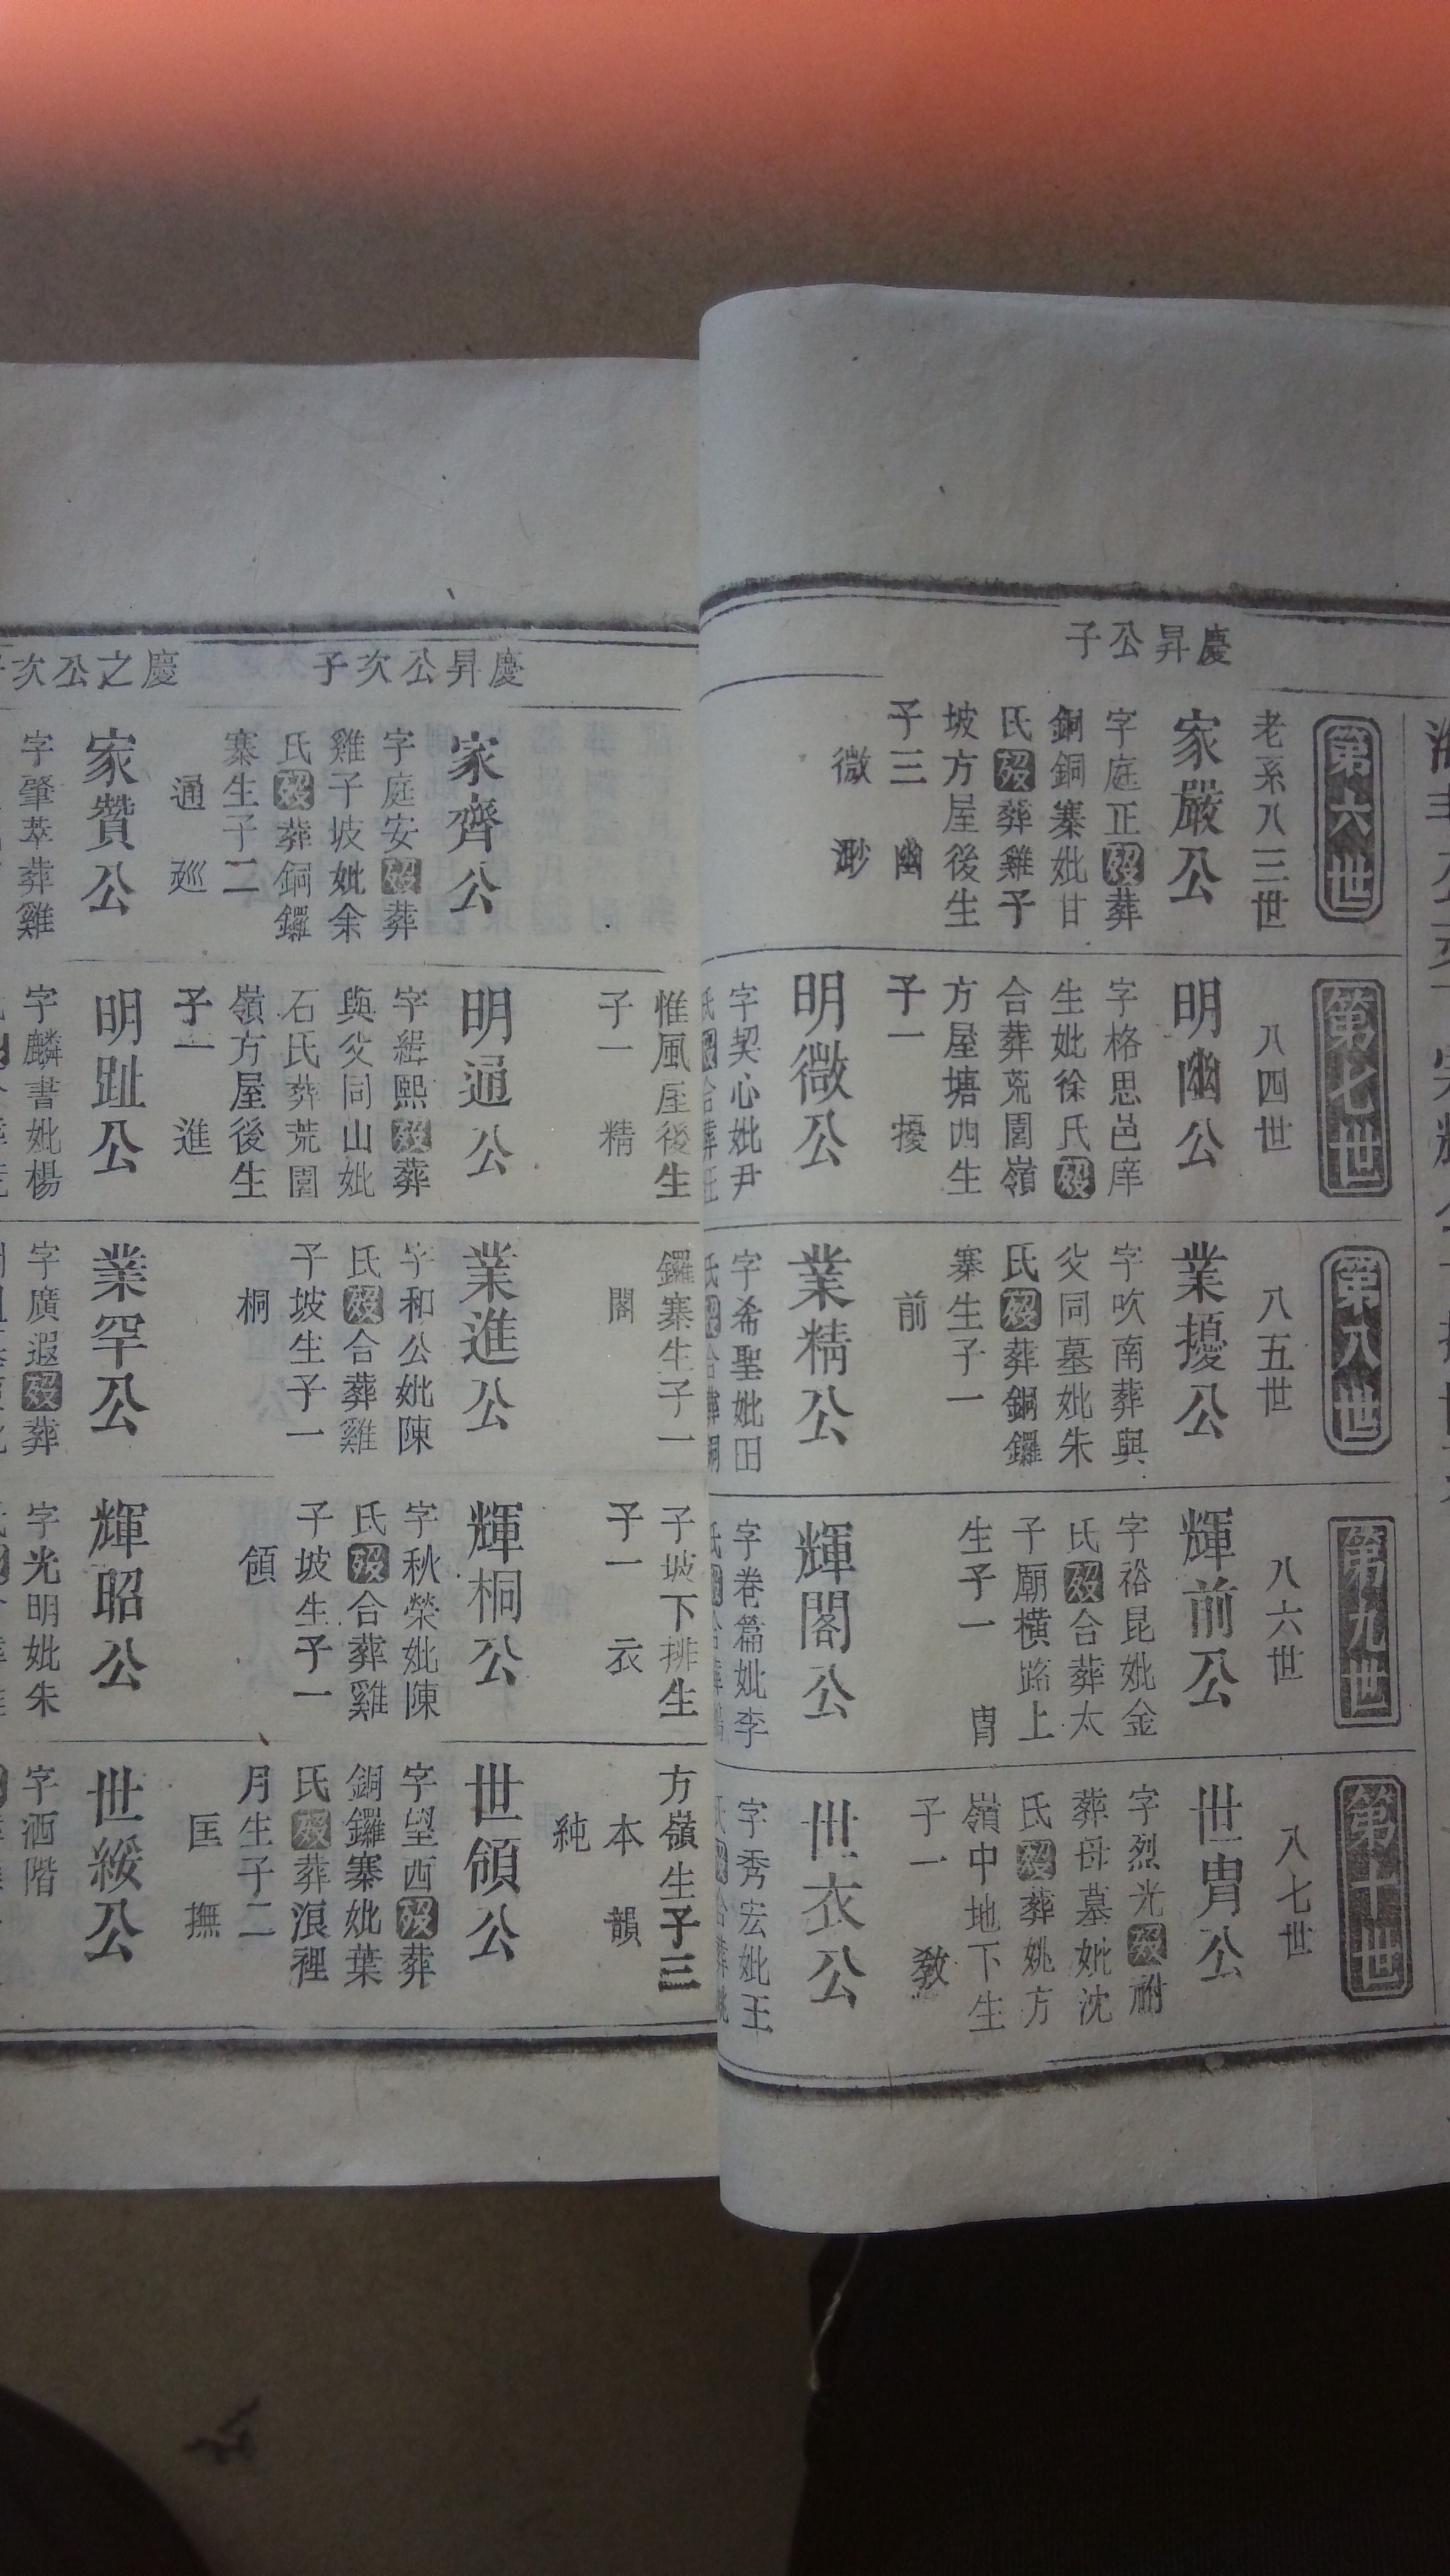 慶昇公子
第六世
老系八三世
家嚴公
字庭正歿葬
銅銅寨妣甘
氏歿葬雞子
坡方屋後生
子三 幽
微 渺
第七世
八四世
明幽公
字格思邑庠
生妣徐氏歿
合葬荒園嶺
方屋塘四生
子一 擾
明微公
字契心妣尹
第八世
八五世
業擾公
字吹南葬與
父同墓妣朱
氏歿葬銅鑼
寨生子一
前
業精公
字希聖妣田
第九世
八六世
輝前公
字裕昆妣金
氏歿合葬太
子廟橫路上
生子一 冑
輝閣公
字卷篇妣李
第十世
八七世
世冑公
字烈光歿祔
葬母墓妣沈
氏歿葬姚方
嶺中地下生
子一 敎
世衣公
字秀宏妣王
慶昇公次子
慶之公次子
家齊公
字庭安歿葬
雞子坡妣余
氏歿葬銅鑼
寨生子二
通 廵
家贊公
字肇萃葬雞
惟風屋後生
子一 精
明通公
字緝熙歿葬
與父同山妣
石氏葬荒園
嶺方屋後生
子一 進
明趾公
字麟書妣楊
鑼寨生子一
閣
業進公
字和公妣陳
氏歿合葬雞
子坡生子一
桐
業罕公
字廣遐歿葬
子坡下排生
子一 衣
輝桐公
字秋榮妣陳
氏歿合葬雞
子坡生子一
領
輝昭公
字光明妣朱
方嶺生子三
本 韻
純
世領公
字望西歿葬
銅鑼寨妣葉
氏歿葬浪裡
月生子二
匡 撫
世綏公
字洒階